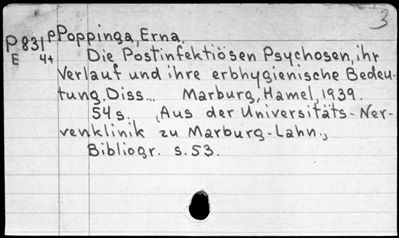 3
P831 P Poppinga, Erna.
E 4+ Die Postinfektiösen Psychosen, ihr
Verlauf und ihre erbhygienische Bedeu-
tung. Diss... Marburg, Hamel, 1939.
54 s. (Aus der Universitäts-Ner-
venklinik zu Marburg-Lahn.,
Bibliogr. s. 53.